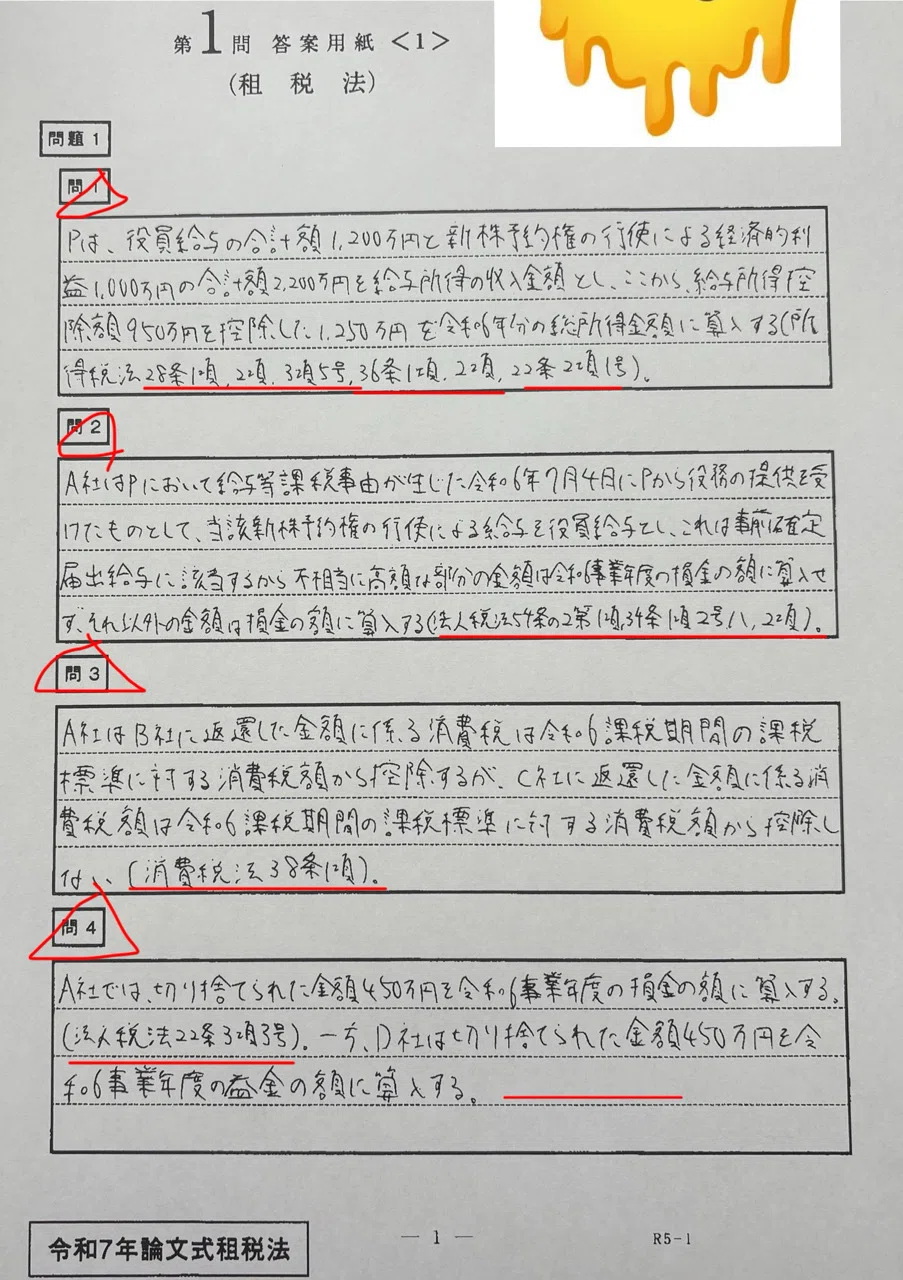 第1問 答案用紙<1>
(租税法)
問題1
問1
Pは、役員給与の合計額1,200万円と新株予約権の行使による経済的利
益1,000万円の合計額2,200万円を給与所得の収入金額とし、ここから、給与所得控
除額950万円を控除した1,250万円を令和6年分の総所得金額に算入する(所
得税法28条1項,2項,3項5号,36条1項,2項,22条2項1号)。
問2
A社はPにおいて給与等課税事由が生じた令和6年7月4日にPから役務の提供を受
けたものとして、当該新株予約権の行使による給与を役員給与とし、これは事前確定
届出給与に該当するから不相当に高額な部分の金額は令和6事業年度の損金の額に算入せ
ず、それ以外の金額は損金の額に算入する(法人税法54条の2第1項,34条1項2号ハ,2項)。
問3
A社はB社に返還した金額に係る消費税は令和6課税期間の課税
標準に対する消費税額から控除するが、C社に返還した金額に係る消
費税額は令和6課税期間の課税標準に対する消費税額から控除し
ない、(消費税法38条1項)。
問4
A社では、切り捨てられた金額450万円を令和6事業年度の損金の額に算入する。
(法人税法22条3項3号)。一方、D社は切り捨てられた金額450万円を令
和6事業年度の益金の額に算入する。
令和7年論文式租税法
— 1 —
R5-1